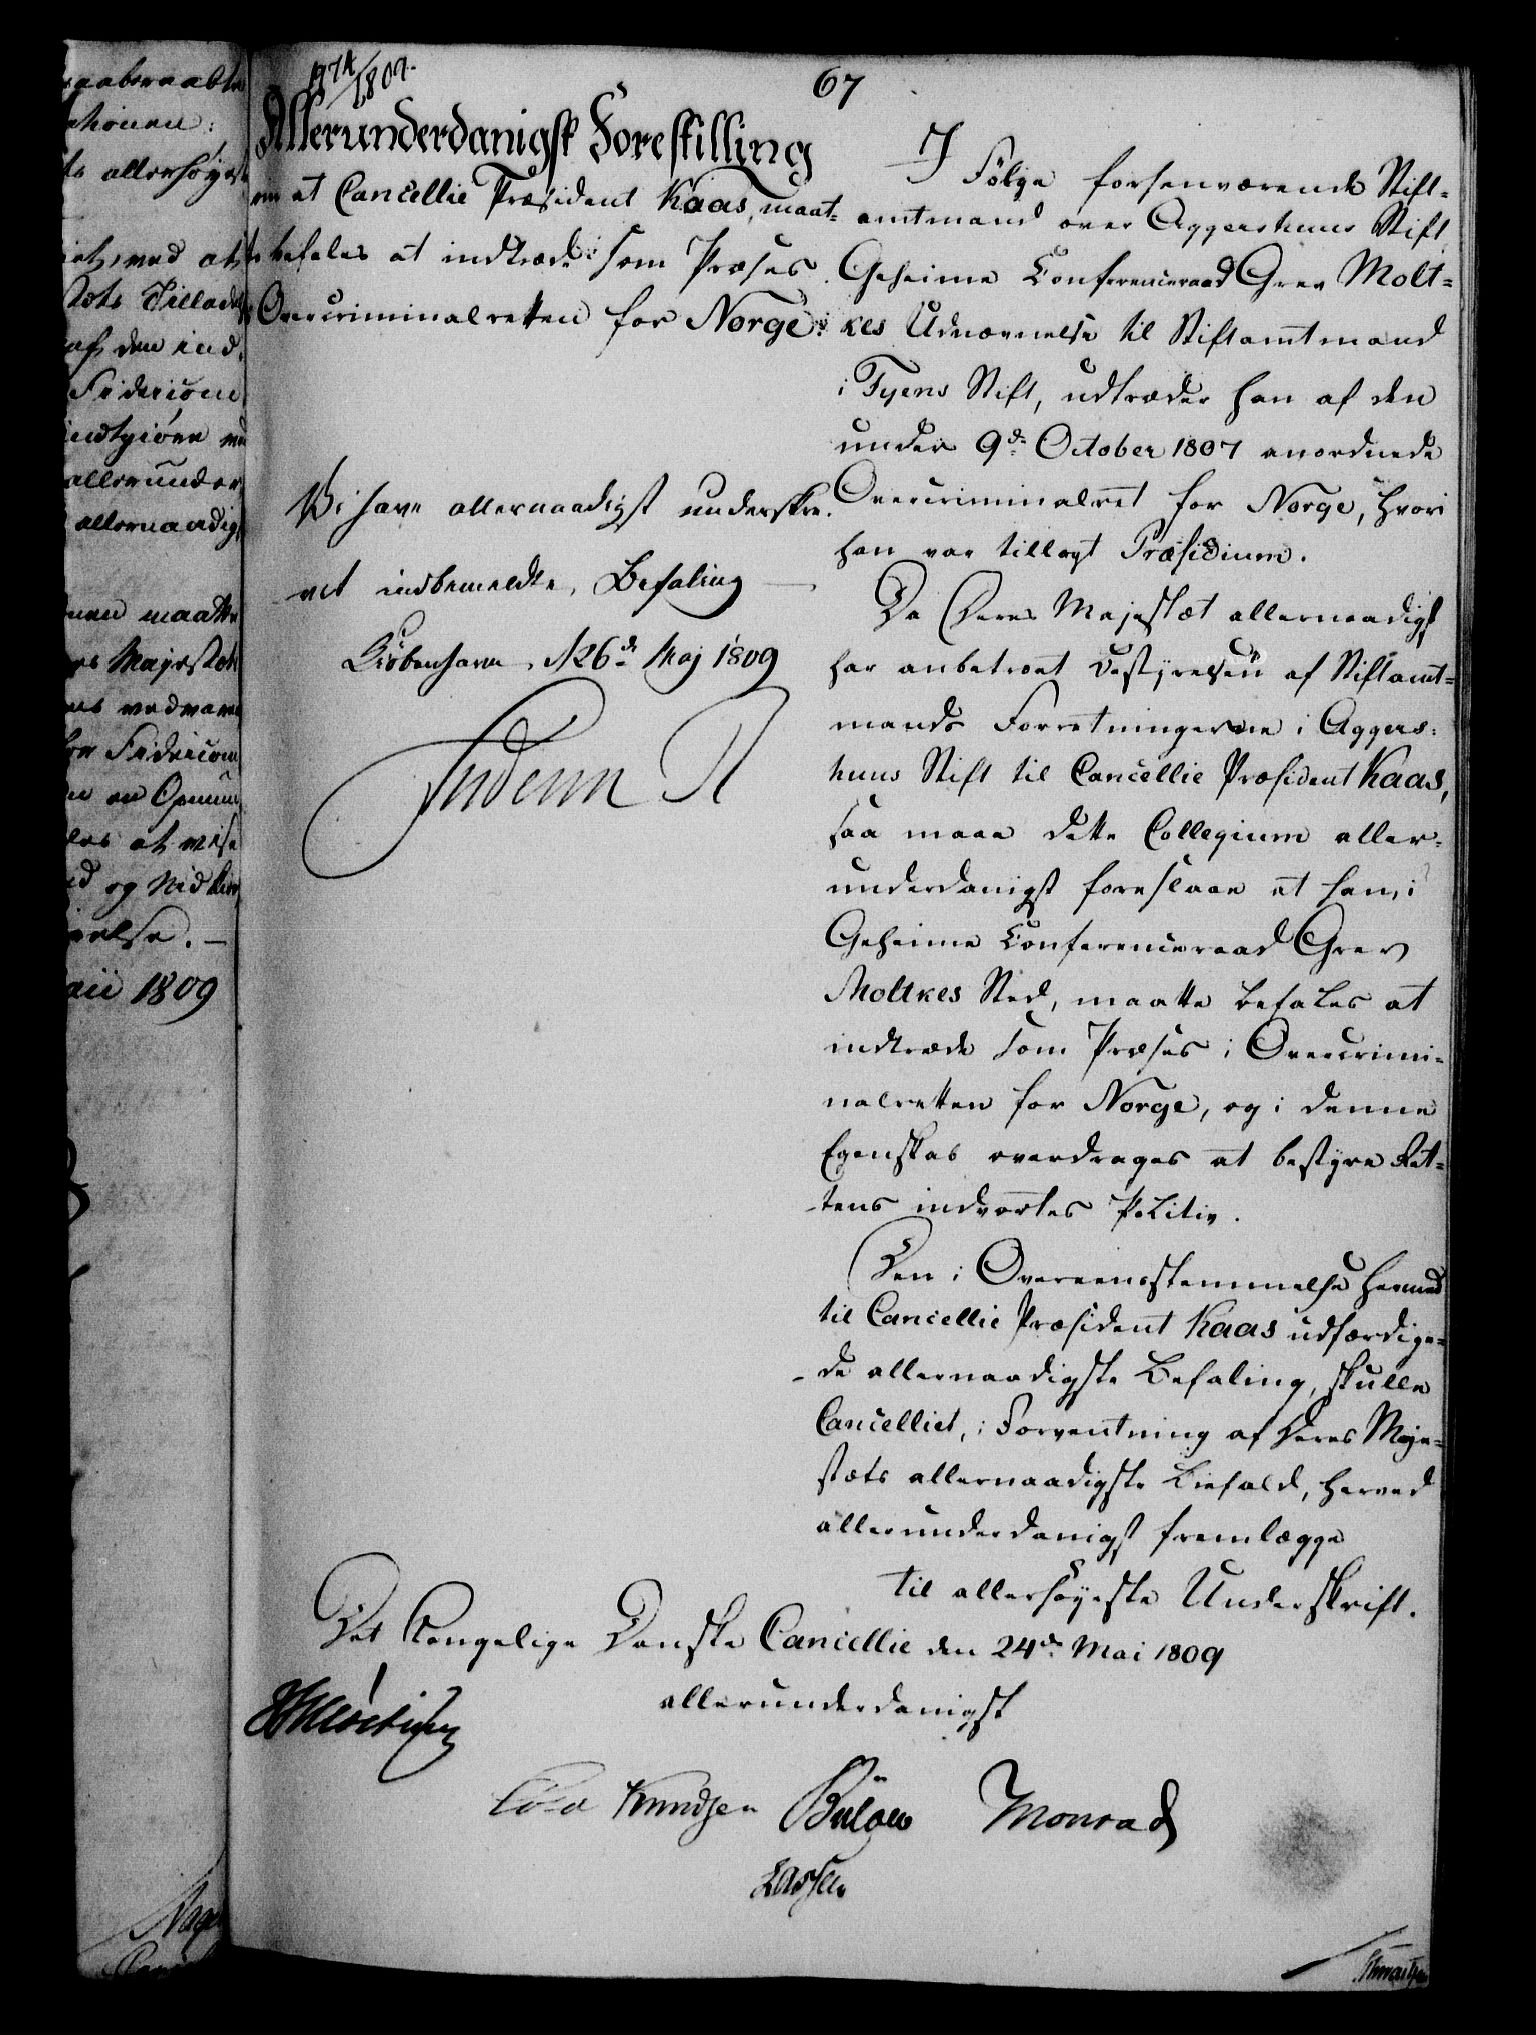 67
Allerunderdanigst Forestilling
om at Cancellie Præsident Kaas, maat-
te befales at indtræde som Præses i
Overcriminalretten for Norge.
Vi have allernaadigst underskre-
vet indbemeldte Befaling
Kiøbenhavn, d. 26de Maj 1809
Frederik R
I Følge forhenværende Stift-
amtmand over Aggershuus Stift
Geheime Conferenceraad Grev Molt-
kes Udnævnelse til Stiftamtmand
i Fyens Stift, udtræder han af den
under 9de October 1807 anordnede
Overcriminalret for Norge, hvori
han var tillagt Præsidium.
Da Deres Majestæt allernaadigst
har anbetroet Bestyrelsen af Stiftamt-
mands Forretningerne i Aggers-
huus Stift til Cancellie Præsident Kaas,
saa maae dette Collegium aller-
underdanigst foreslaae at han, i
Geheime Conferenceraad Grev
Moltkes Sted, maatte befales at
indtræde som Præses i Overcrimi-
nalretten for Norge, og i denne
Egenskab overdrages at bestyre Ret-
tens indvortes Politie.
Den i Overeensstemmelse hermed
til Cancellie Præsident Kaas udfærdige-
de allernaadigste Befaling, skulle
Cancelliet, i Forventning af Deres Maje-
stæts allernaadigste Biefald, herved
allerunderdanigst fremlægge
til allerhøyeste Underskrift.
Det Kongelige Danske Cancellie den 24de Mai 1809
allerunderdanigst
Cold Knudsen Bülow Monrad
Lassen
aabenraadte
allerhøyest
ved at
af den ind
Fridericia
allerunder
allernaadig
maatte
Majestæt
at vise
og Nidkier
1809